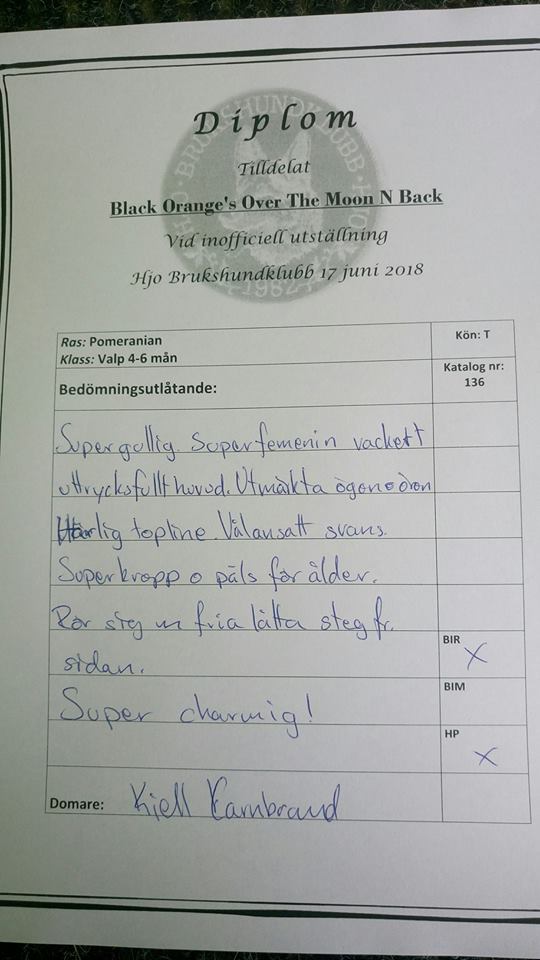 Diplom
Tilldelat
Black Orange's Over The Moon N Back
Vid inofficiell utställning
Hjo Brukshundklubb 17 juni 2018
Ras: Pomeranian
Klass: Valp 4-6 mån
Kön: T
Bedömningsutlåtande:
Katalog nr:
136
Supergullig. Superfemenin vackett
uttrycksfullt huvud. Utmärkta ögon o öron
Härlig topline. Välansatt svans.
Superkropp o päls för ålder.
Rör sig m fria lätta steg fr.
sidan.
BIR
X
Super charmig!
BIM
HP
X
Domare: Kjell